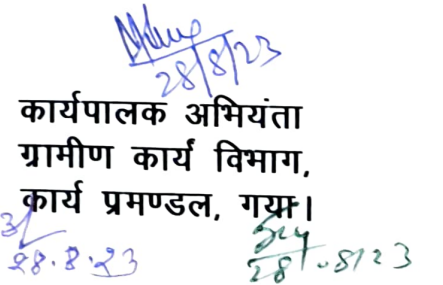 28/8/23
कार्यपालक अभियंता
ग्रामीण कार्य विभाग,
कार्य प्रमण्डल, गया।
28.8.23
28.8/23